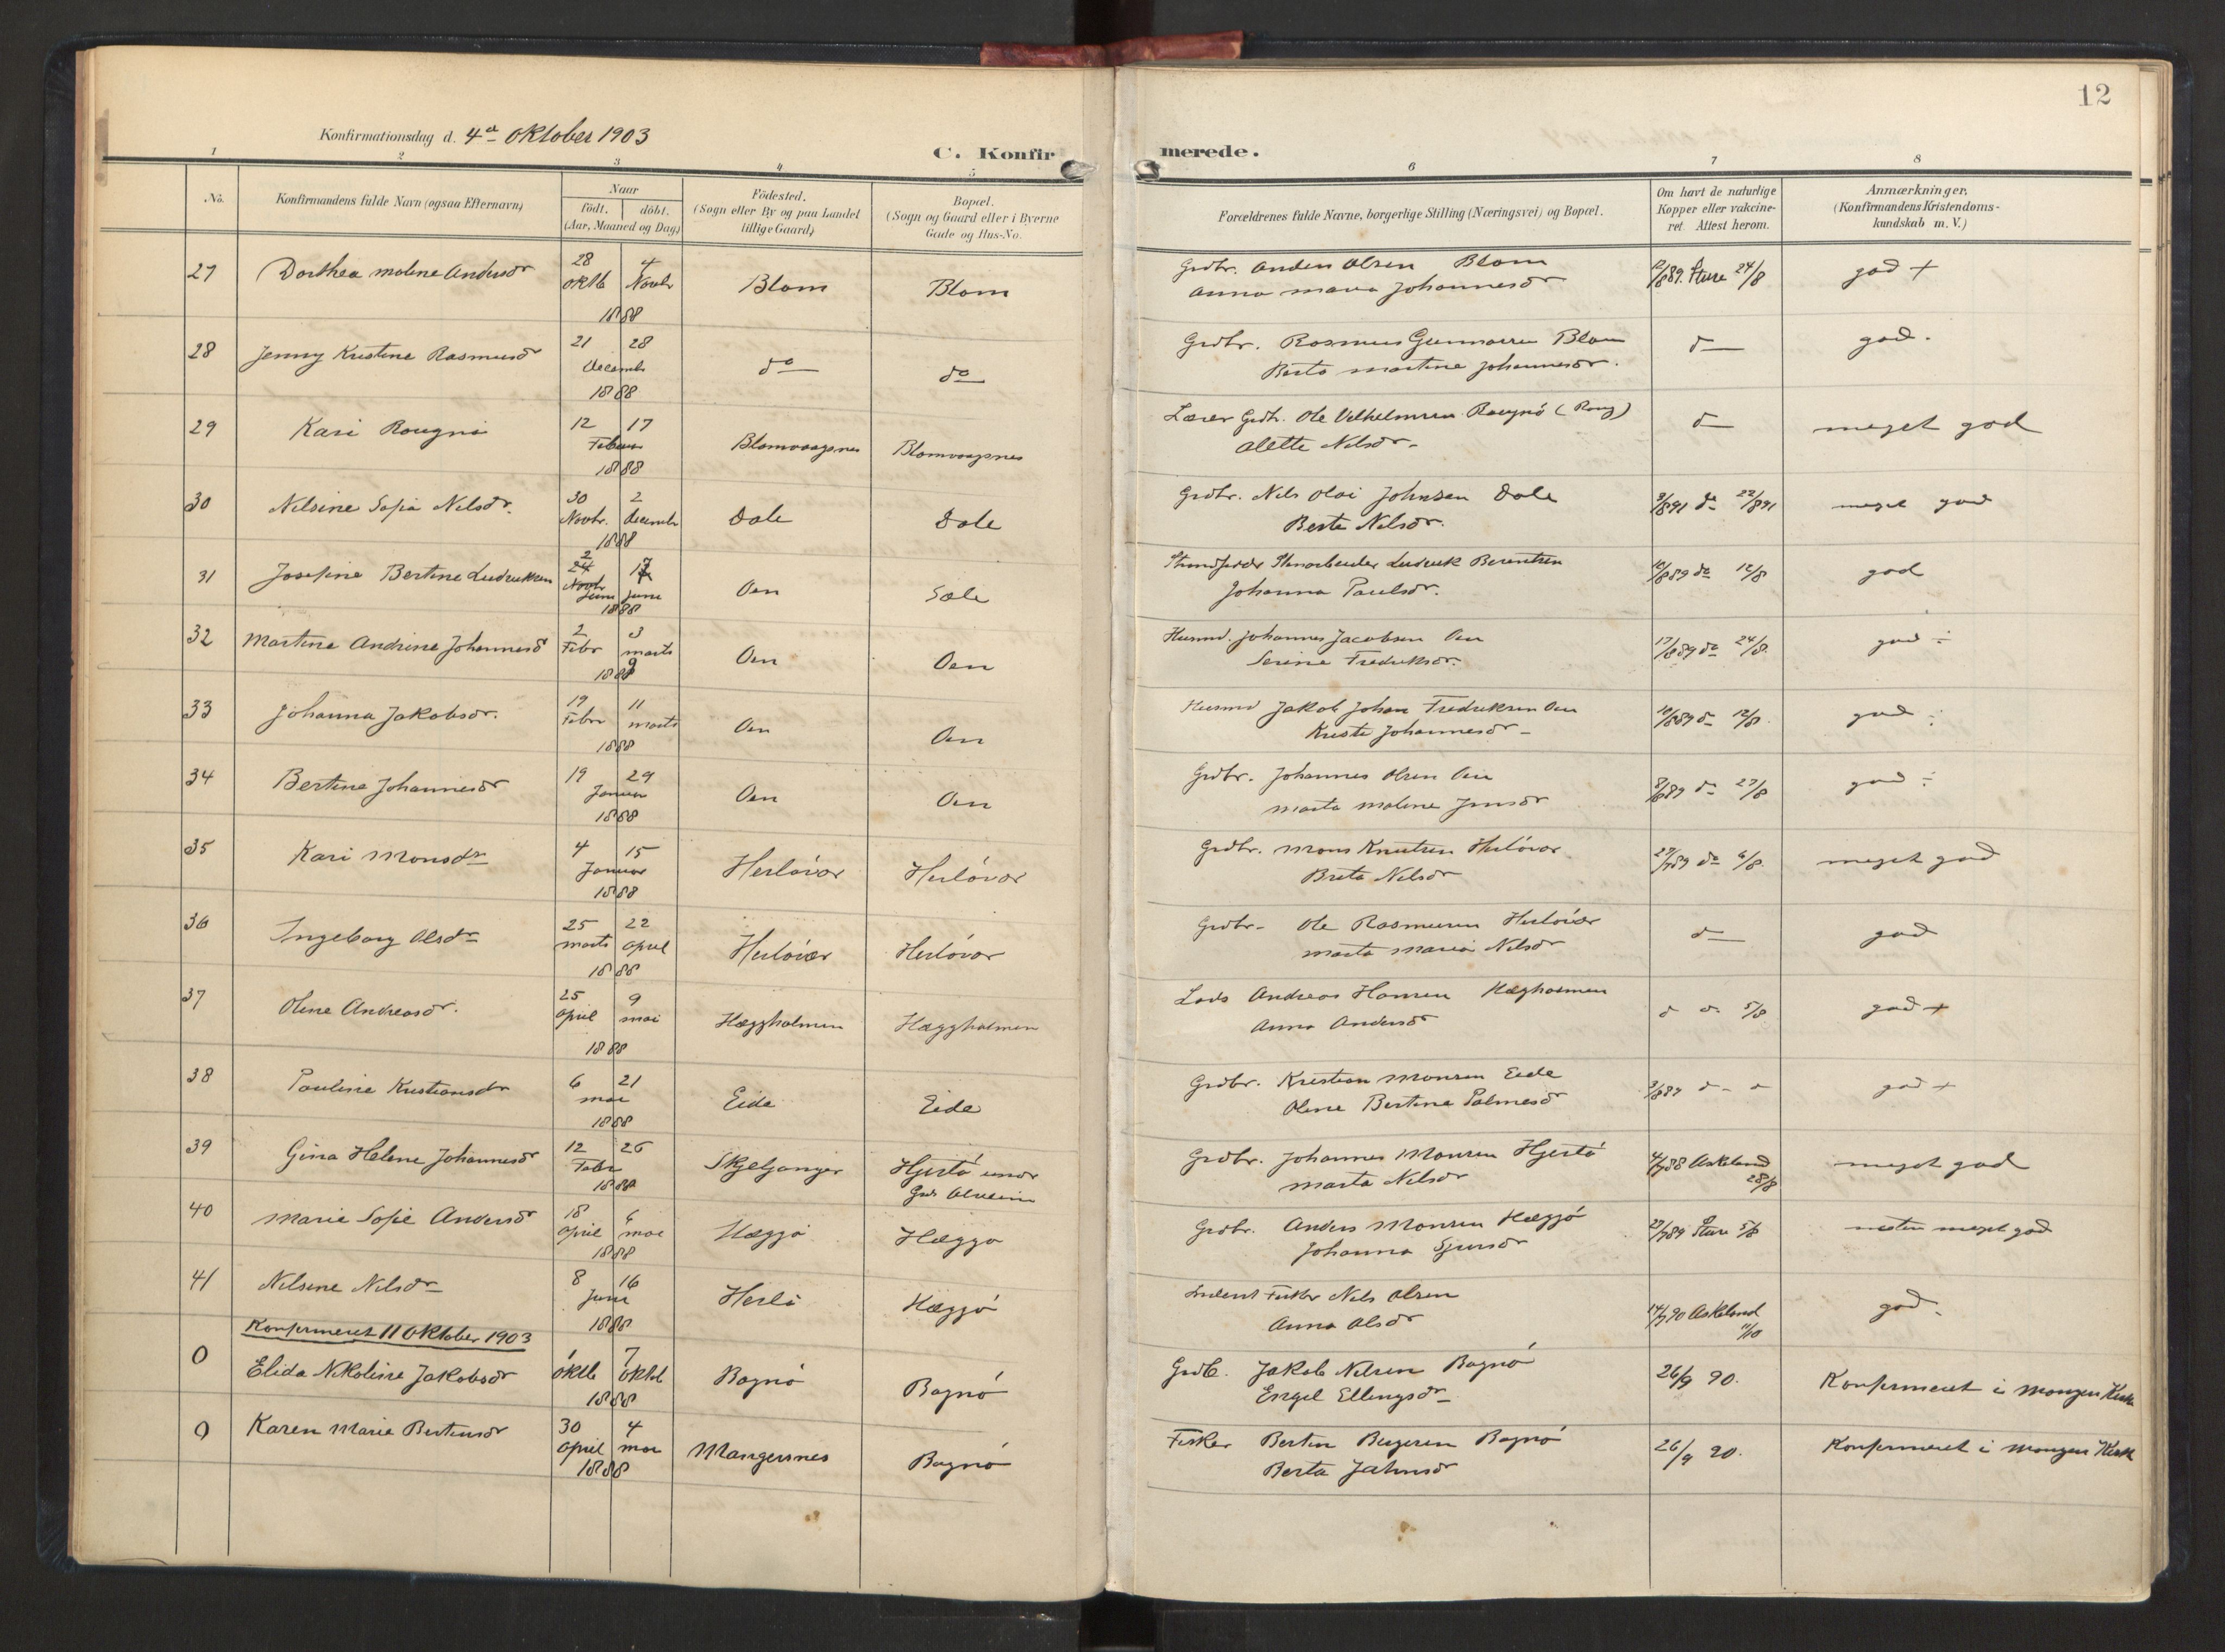 12
Konfirmationsdag d. 4de Oktober 1903
C. Konfirmerede.
1 2 3 4 5 6 7 8
No.
Konfirmandens fulde Navn (ogsaa Efternavn)
Naar
født. | döbt.
(Aar, Maaned og Dag)
Födested.
(Sogn eller By og paa Landet
tillige Gaard)
Bopæl.
(Sogn og Gaard eller i Byerne
Gade og Hus-No.
Forældrenes fulde Navne, borgerlige Stilling (Næringsvei) og Bopæl.
Om havt de naturlige
Kopper eller vakcine-
ret. Attest herom.
Anmærkninger.
(Konfirmandens Kristendoms-
kundskab m. V.)
27 Dorthea Malene Andersdr 28 Oktb 4 Novbr 1888 Blom Blom Grdbr. Anders Olsen Blom
Anna Maria Johannesdr 889. Sture 24/8 god +
28 Jenny Kristine Rasmusdr 21 28 Decemb 1888 do do Grdbr. Rasmus Gunnarsen Blom
Berta Martine Johannesdr. d god.
29 Kari Rougnø 12 17 Februar 1888 Blomvaagsnes Blomvaagsnes Lærer Grdbr. Ole Vilhelmsen Rougnø (Rong)
Alette Nilsdr d meget god
30 Nilsine Sofia Nilsdr. 30 Novbr. 2 Decemb 1888 Dale Dale Grdbr. Nils Olai Johnsen Dale
Berte Nilsdr. 3/891 do 22/891 meget god
31 Josefine Bertine Ludviksen 2 Juni 17 Juni 1888 Oen Sæle Stenarbeider Ludvik Berentsen
Johanna Paulsdr. 10/889 do 12/8 god
32 Martine Andrine Johannesd 2 Febr 3 Marts 1889 Oen Oen Husmd. Johannes Jacobsen Oen
Serine Fredriksdr. 17/889 do 24/8. god ÷
33 Johanna Jakobsdr. 19 Febr 11 Marts 1888 Oen Oen Husmd Jakob Johan Fredriksen Oen
Kristi Johannesdr 10/889 d 12/8. god ÷
34 Bertine Johannesdr 19 29 Januar 1888 Oen Oen Grdbr. Johannes Olsen Oen
Marta Malene Jensdr 889 d 27/8 god ÷
35 Kari Monsdr 4 15 Januar 1888 Herløvær Herløvær Grdbr. Mons Knutsen Herløvær
Brita Nilsdr 29/789 do 6/8. meget god
36 Ingeborg Olsdr 25 Marts 22 April 1888 Herløvær Herløvær Grdbr. Ole Rasmussen Herløvær
Marta Maria Nilsdr d god
37 Oline Andreasdr. 25 April 9 Mai 1888 Hæggholmen Hæggholmen Lods Andreas Hansen Hægholmen
Anna Andersdr d d 5/8 god +
38 Pauline Kristiansdr 6 21 Mai 1888 Eide Eide Grdbr. Kristian Monsen Eide
Oline Bertine Palmesdr 3/889 d d god +
39 Gina Helene Johannesdr 12 26 Febr 1888 Skjeljanger Hjertø under
Grdbr. Johannes Monsen Hjertø
Marta Nilsdr 4/788 Askeland
28/8 meget god
40 Marie Sofie Andersdr 18 April 6 Mai 1888 Hæggø Hæggø Grdbr. Anders Monsen Hæggø
Johanna Sjursdr 29/789 Sture 5/8 næsten meget god
41 Nilsine Nilsdr 8 16 Juni 1888 Herlø Hæggø Inderst Fisker Nils Olsen
Anna Olsdr 14/790 Askeland
11/10 god.
Konfirmeret 11 Oktober 1903
0 Elida Nikoline Jakobsdr 1 Oktb 7 Oktob 1888 Bognø Bognø Grdb. Jakob Nilsen Bognø
Engel Ellingsdr 26/9 90. Konfirmeret i Manger Kirke
0 Karen Marie Bertensdr 30 April 4 Mai 1888 Mangersnes Bognø Fisker Berten Bognø
Berta Johnsdr 26/9 90. Konfirmeret i Manger Kirke